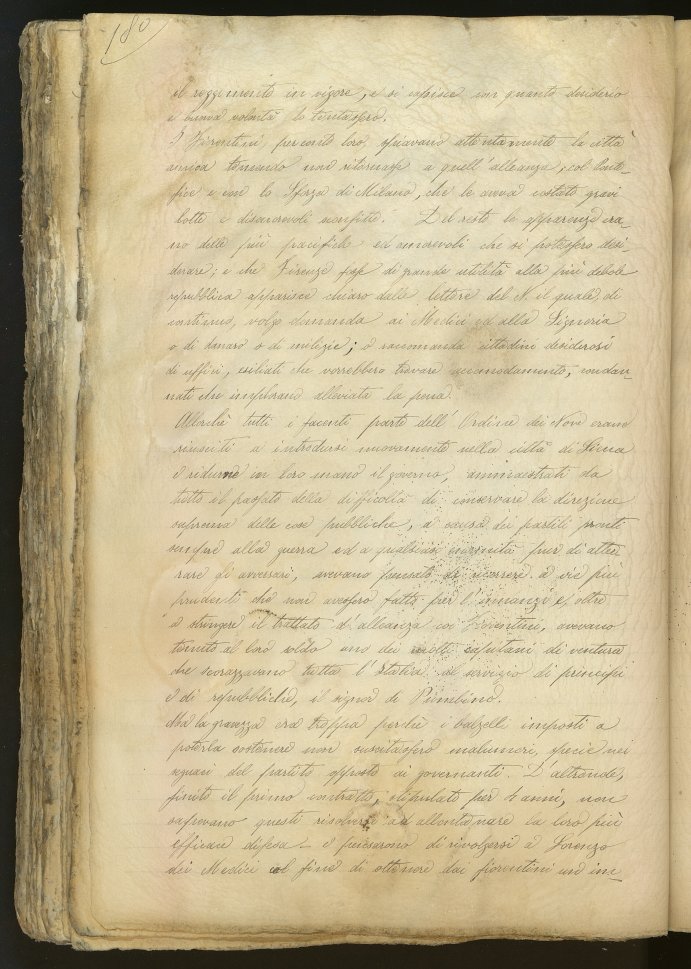 180
il reggimento in vigore, e si capisce con quanto desiderio
e buona volontà lo tentassero.
I Fiorentini, per conto loro, spiavano attentamente la città
amica temendo non ritornasse a quell'alleanza, col Ponte-
fice e con lo Sforza di Milano, che le aveva costato gravi
lotte e disonorevoli sconfitte. Del resto le apparenze era-
no delle più pacifiche ed amorevoli che si potessero desi-
derare; e che Firenze fosse di grande utilità alla più debole
repubblica apparisce chiaro dalle lettere del N. il quale, di
continuo, volge domanda ai Medici ed alla Signoria
o di danaro o di milizie; o raccomanda cittadini desiderosi
di uffici, esiliati che vorrebbero trovare accomodamento, condan-
nati che implorano alleviata la pena.
Allorchè tutti i facenti parte dell'Ordine dei Nove erano
riusciti a introdursi nuovamente nella città di Siena
e ridurne in loro mano il governo, ammaestrati da
tutto il passato della difficoltà di conservare la direzione
suprema delle cose pubbliche, a causa dei partiti pronti
sempre alla guerra ed a qualsiasi enormità pur di atter-
rare gli avversari, avevano pensato di ricorrere a vie più
prudenti che non avessero fatto per l'innanzi e, oltre
a stringere il trattato d'alleanza coi Fiorentini, avevano
tenuto al loro soldo uno dei molti capitani di ventura
che scorazzavano tutta l'Italia al servizio di principi
e di repubbliche, il signor di Piombino.
Ma la gravezza era troppa perchè i balzelli imposti a
poterla sostenere non suscitassero malumori, specie nei
seguaci del partito opposto ai governanti. D'altronde,
finito il primo contratto, stipulato per 4 anni, non
sapevano questi risolversi ad allontanare la loro più
efficace difesa - e pensarono di rivolgersi a Lorenzo
dei Medici al fine di ottenere dai fiorentini un im-